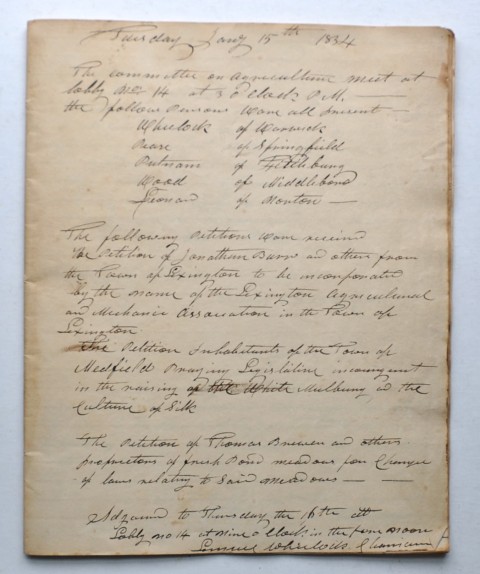 Tuesday Jany 15th 1834
The committee on Agriculture meet at
lobby No 14 at 3 O'clock P.M. —
the follow Persons ware all present —
Wheelock of Warwick
Pease of Springfield
Putnam of Fitchburg
Wood of Middleboro
Leonard of Norton —
The following Petitions ware receivd
The Petition of Jonathan and others from
the Town of Lexington to be incorporated
by the name of the Lexington Agricultural
and Mechanic Association in the Town of
Lexington
The Petition Inhabitants of the Town of
Medfield Praying Legislative incoragment
in the raising of the White Mulburry and the
Culture of Silk
The Petition of Thomas Brewer and others
proprietors of fresh Pond meadows for Change
of laws relating to Said meadows — —
Adjournd to Thursday the 16th
Lobby no 14 at nine o'Clock in the fore noon
Samuel Wheelock Chairman